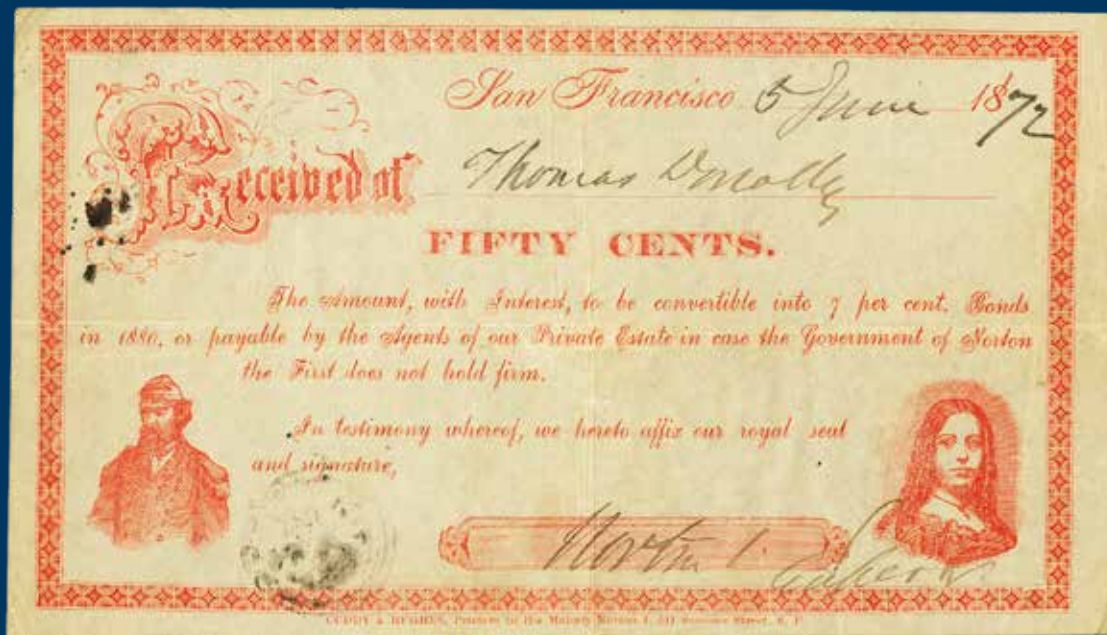 San Francisco 5 June 1872
Received of Thomas Donolly
FIFTY CENTS.
The Amount, with Interest, to be convertible into 7 per cent. Bonds
in 1880, or payable by the Agents of our Private Estate in case the Government of Norton
the First does not hold firm.
In testimony whereof, we hereto affix our royal seal
and signature,
Norton I.
CUDDY & HUGHES, Printers to His Majesty Norton I, 511 Sansome Street, S. F.